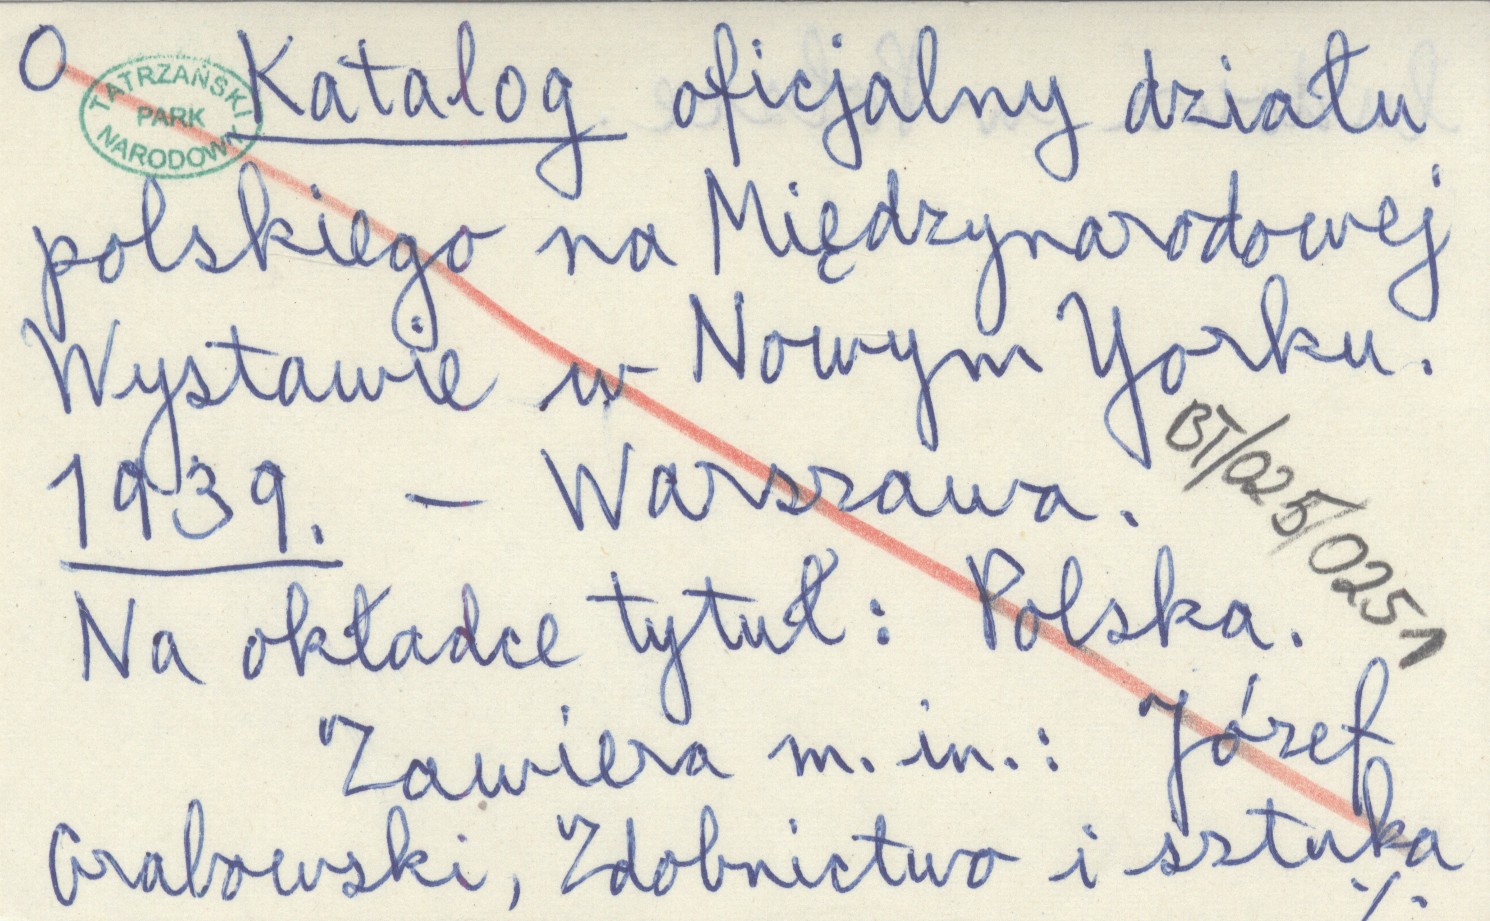 O Katalog oficjalny działu
TATRZAŃSKI
PARK
NARODOWY
polskiego na Międzynarodowej
Wystawie w Nowym Yorku.
1939. – Warszawa.
BT/025/0251
Na okładce tytuł: Polska.
Zawiera m. in.: Józef
Grabowski, Zdobnictwo i sztuka
./.